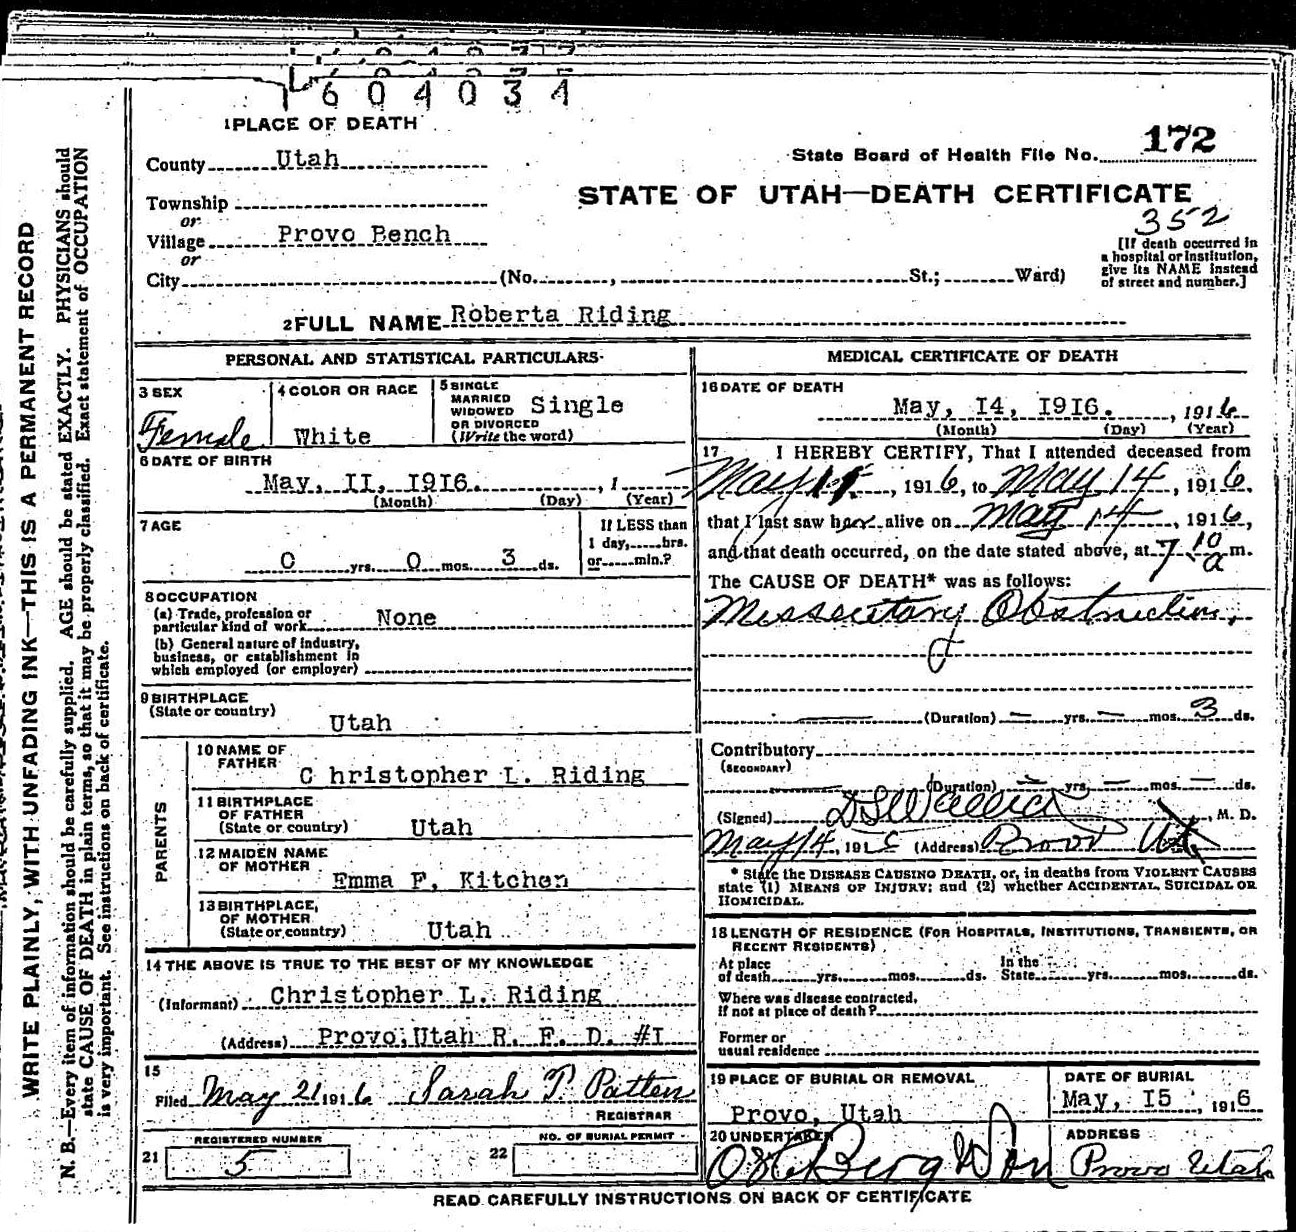 1 6 0 4 0 3 4
1 PLACE OF DEATH
County Utah
State Board of Health File No. 172
Township
or
STATE OF UTAH—DEATH CERTIFICATE
352
Village Provo Bench
or
City (No. , St.; Ward)
[If death occurred in
a hospital or institution,
give its NAME instead
of street and number.]
2 FULL NAME Roberta Riding
PERSONAL AND STATISTICAL PARTICULARS
3 SEX
Female
4 COLOR OR RACE
White
5 SINGLE
MARRIED
WIDOWED
OR DIVORCED
(Write the word)
Single
6 DATE OF BIRTH
May, II, I9I6. , 1
(Month) (Day) (Year)
7 AGE
0 yrs. 0 mos. 3 ds.
If LESS than
1 day, hrs.
or min.?
8 OCCUPATION
(a) Trade, profession or
particular kind of work None
(b) General nature of industry,
business, or establishment in
which employed (or employer)
9 BIRTHPLACE
(State or country)
Utah
PARENTS
10 NAME OF
FATHER
C hristopher L. Riding
11 BIRTHPLACE
OF FATHER
(State or country) Utah
12 MAIDEN NAME
OF MOTHER
Emma F. Kitchen
13 BIRTHPLACE,
OF MOTHER
(State or country) Utah
14 THE ABOVE IS TRUE TO THE BEST OF MY KNOWLEDGE
(Informant) Christopher L. Riding
(Address) Provo, Utah R. F. D. #I
15
Filed May 21 1916 Sarah T. Patten
REGISTRAR
REGISTERED NUMBER
21 5
NO. OF BURIAL PERMIT
22
MEDICAL CERTIFICATE OF DEATH
16 DATE OF DEATH
May, I4, I9I6. , 1916
(Month) (Day) (Year)
17 I HEREBY CERTIFY, That I attended deceased from
May 11, 1916, to May 14, 1916,
that I last saw her alive on May 14, 1916,
and that death occurred, on the date stated above, at 7 10 a m.
The CAUSE OF DEATH* was as follows:
Obstruction,
(Duration) — yrs. — mos. 3 ds.
Contributory
(SECONDARY)
(Duration) — yrs. — mos. — ds.
(Signed) M. D.
May 14, 1916 (Address) Provo Ut
* State the DISEASE CAUSING DEATH, or, in deaths from VIOLENT CAUSES
state (1) MEANS OF INJURY; and (2) whether ACCIDENTAL, SUICIDAL OR
HOMICIDAL.
18 LENGTH OF RESIDENCE (FOR HOSPITALS, INSTITUTIONS, TRANSIENTS, OR
RECENT RESIDENTS)
At place
of death yrs. mos. ds.
In the
State yrs. mos. ds.
Where was disease contracted,
If not at place of death?
Former or
usual residence
19 PLACE OF BURIAL OR REMOVAL
Provo, Utah
DATE OF BURIAL
May, I5 , 1916
20 UNDERTAKER
Berg & Son
ADDRESS
Provo Utah
READ CAREFULLY INSTRUCTIONS ON BACK OF CERTIFICATE
WRITE PLAINLY, WITH UNFADING INK—THIS IS A PERMANENT RECORD
N. B.—Every item of information should be carefully supplied. AGE should be stated EXACTLY. PHYSICIANS should
state CAUSE OF DEATH in plain terms, so that it may be properly classified. Exact statement of OCCUPATION
is very important. See instructions on back of certificate.